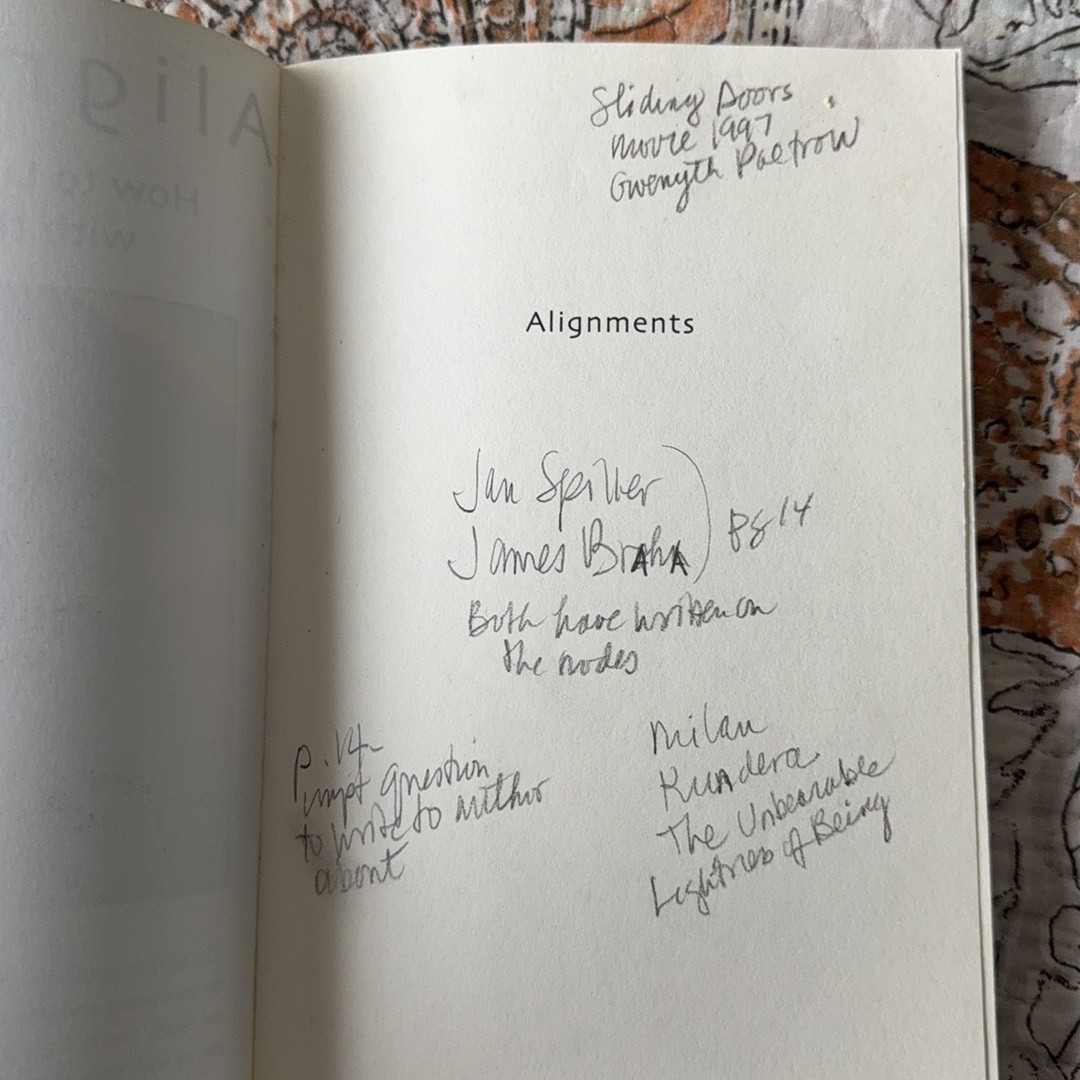 Alig
How to
wit
Sliding Doors
movie 1997
Gwenyth Paltrow
Alignments
Jan Spiller
James Braha
Pg 14
Both have written on
the nodes
p. 14-
impt question
to write to author
about
Milan
Kundera
The Unbearable
Lightness of Being